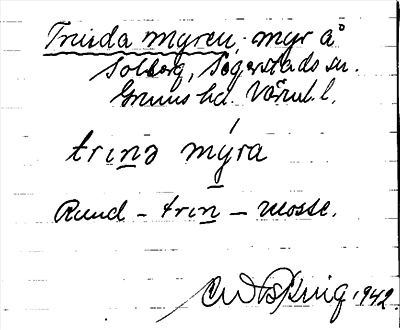 Trinda myren, myr å
Solberg, Segerstads sn.
Grums hd. Värml. l.
trinə mýra
Rund – trin – mosse.
1942.